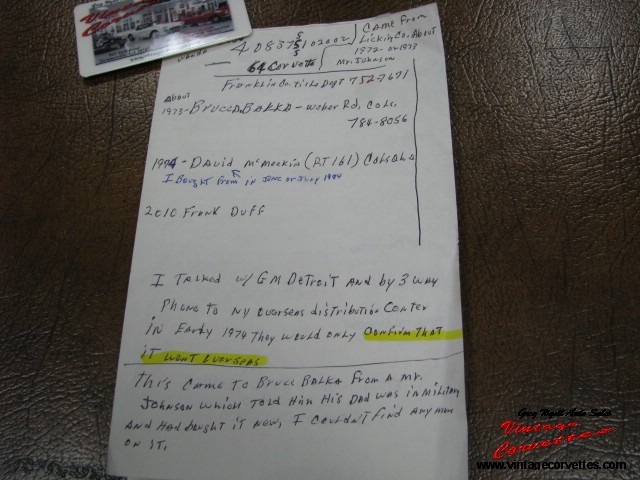 Vintage
Corvettes
40837S102002
S
S
64 Corvette
Came From
Licking Co. About
1972 or 1973
Mr. Johnson
Franklin Co. Title Dept 752-7671
About
1973 - Bruce Balka - Weber Rd, Cols.
784-8056
1974 - David McMeekin (RT 161) Cols Oh
I Bought From in June or July 1974
2010 Frank Duff
I Talked w/ GM Detroit And by 3 way
Phone to NY overseas distribution Center
In Early 1974 They would only confirm that
it went overseas
This came to Bruce Balka From a Mr.
Johnson which Told Him His Dad was in Military
And Had bought it New, I couldn't find any more
on it.
Greg Wyatt Auto Sales
Vintage
Corvettes
www.vintagecorvettes.com